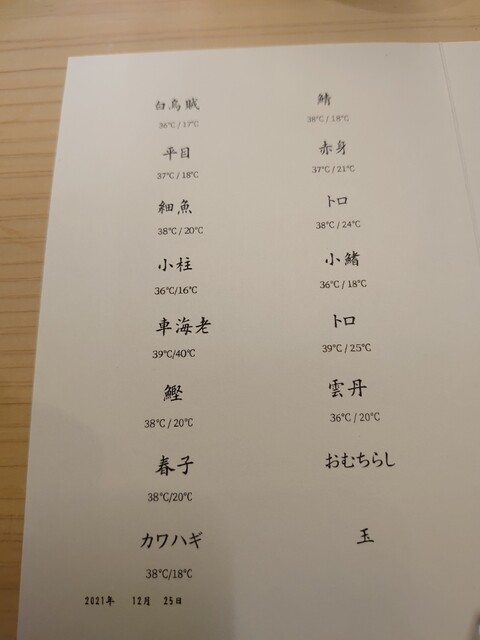 白烏賊
36℃ / 17℃
平目
37℃ / 18℃
細魚
38℃ / 20℃
小柱
36℃/16℃
車海老
39℃/40℃
鰹
38℃ / 20℃
春子
38℃/20℃
カワハギ
38℃/18℃
鯖
38℃ / 18℃
赤身
37℃ / 21℃
トロ
38℃ / 24℃
小鰭
36℃ / 18℃
トロ
39℃ / 25℃
雲丹
36℃ / 20℃
おむちらし
玉
2021年 12月 25日